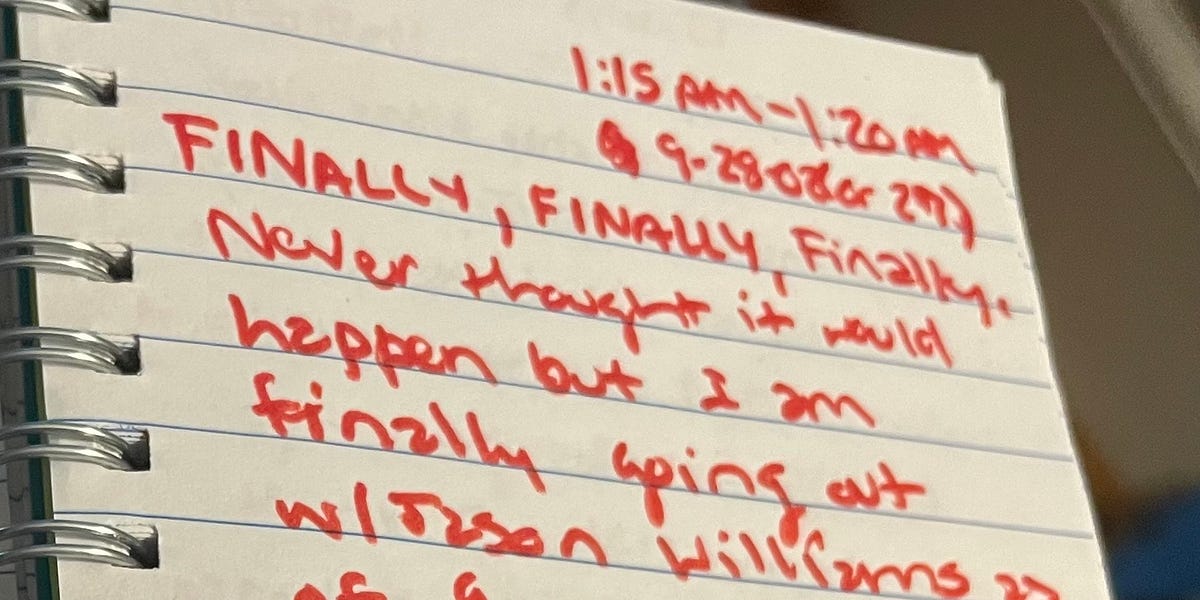 1:15 AM - 1:20 AM
9-28-02 (or 29?)
FINALLY, FINALLY, Finally.
Never thought it would
happen but I am
finally going out
w/ Jason Williams as
of